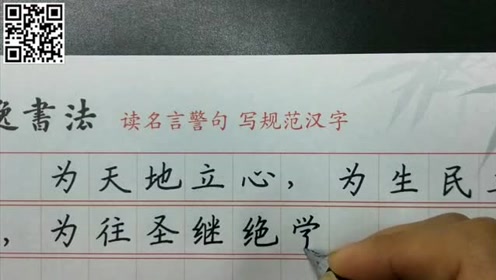 書法 读名言警句 写规范汉字
为天地立心，为生民
，为往圣继绝学